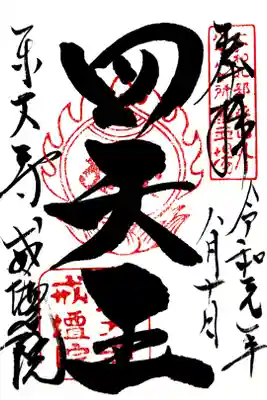 奉拝
令和元年
八月十日
四天王
東大寺
戒壇院
戒壇院